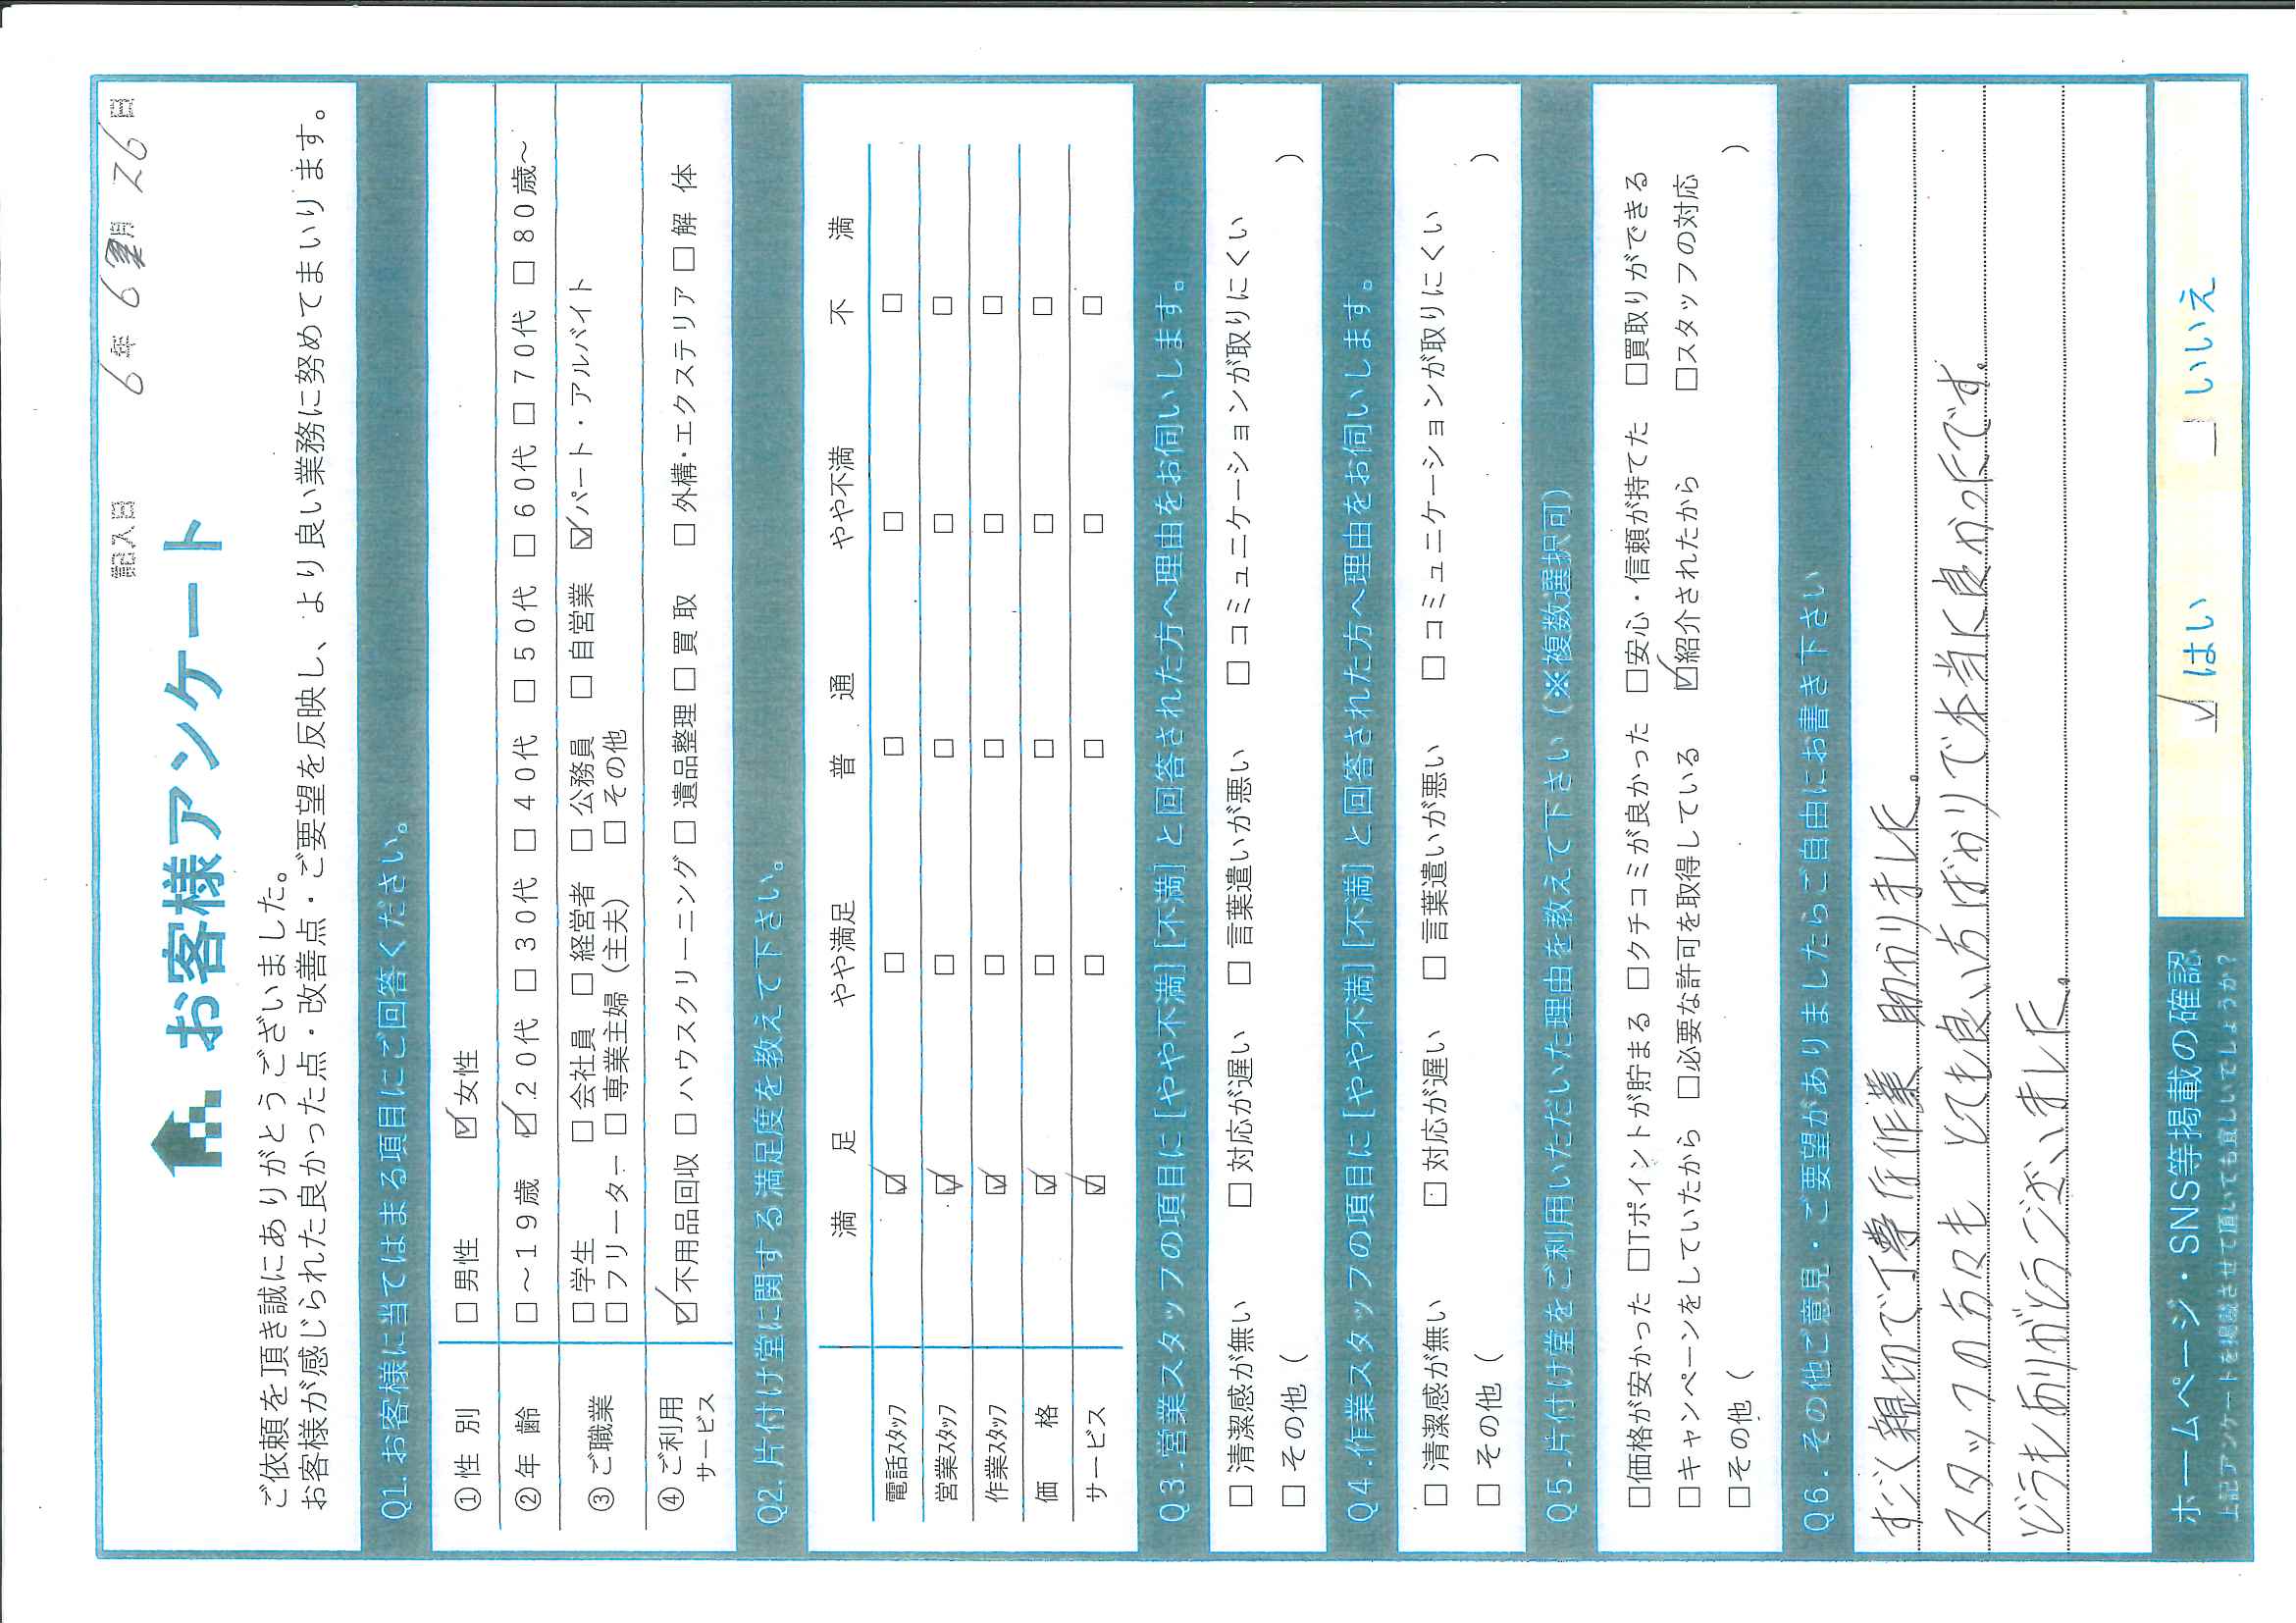 記入日 6年 6月 26日
お客様アンケート
ご依頼を頂き誠にありがとうございました。
お客様が感じられた良かった点・改善点・ご要望を反映し、より良い業務に努めてまいります。
Q1.お客様に当てはまる項目にご回答ください。
①性 別 □男性 ☑女性
②年 齢 □~19歳 ☑20代 □30代 □40代 □50代 □60代 □70代 □80歳~
③ご職業 □学生 □会社員 □経営者 □公務員 □自営業 ☑パート・アルバイト
□フリーター □専業主婦(主夫) □その他
④ご利用サービス ☑不用品回収 □ハウスクリーニング □遺品整理 □買取 □外構・エクステリア □解 体
Q2.片付け堂に関する満足度を教えて下さい。
満 足 やや満足 普 通 やや不満 不 満
電話スタッフ ☑ □ □ □ □
営業スタッフ ☑ □ □ □ □
作業スタッフ ☑ □ □ □ □
価 格 ☑ □ □ □ □
サービス ☑ □ □ □ □
Q3.営業スタッフの項目に[やや不満][不満]と回答された方へ理由をお伺いします。
□ 清潔感が無い □ 対応が遅い □ 言葉遣いが悪い □ コミュニケーションが取りにくい
□ その他 ( )
Q4.作業スタッフの項目に[やや不満][不満]と回答された方へ理由をお伺いします。
□ 清潔感が無い □ 対応が遅い □ 言葉遣いが悪い □ コミュニケーションが取りにくい
□ その他 ( )
Q5.片付け堂をご利用いただいた理由を教えて下さい(※複数選択可)
□価格が安かった □Tポイントが貯まる □クチコミが良かった □安心・信頼が持てた □買取りができる
□キャンペーンをしていたから □必要な許可を取得している ☑紹介されたから □スタッフの対応
□その他 ( )
Q6.その他ご意見・ご要望がありましたらご自由にお書き下さい
すごく親切で丁寧な作業 助かりました。
スタッフの方々も とても良い方ばかりで本当に良かったです。
どうもありがとうございました。
ホームページ・SNS等掲載の確認
上記アンケートを掲載させて頂いても宜しいでしょうか?
☑ はい □ いいえ